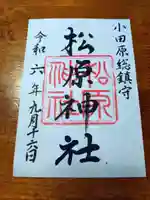 小田原総鎮守
松原神社
令和六年九月十六日
松原
神社